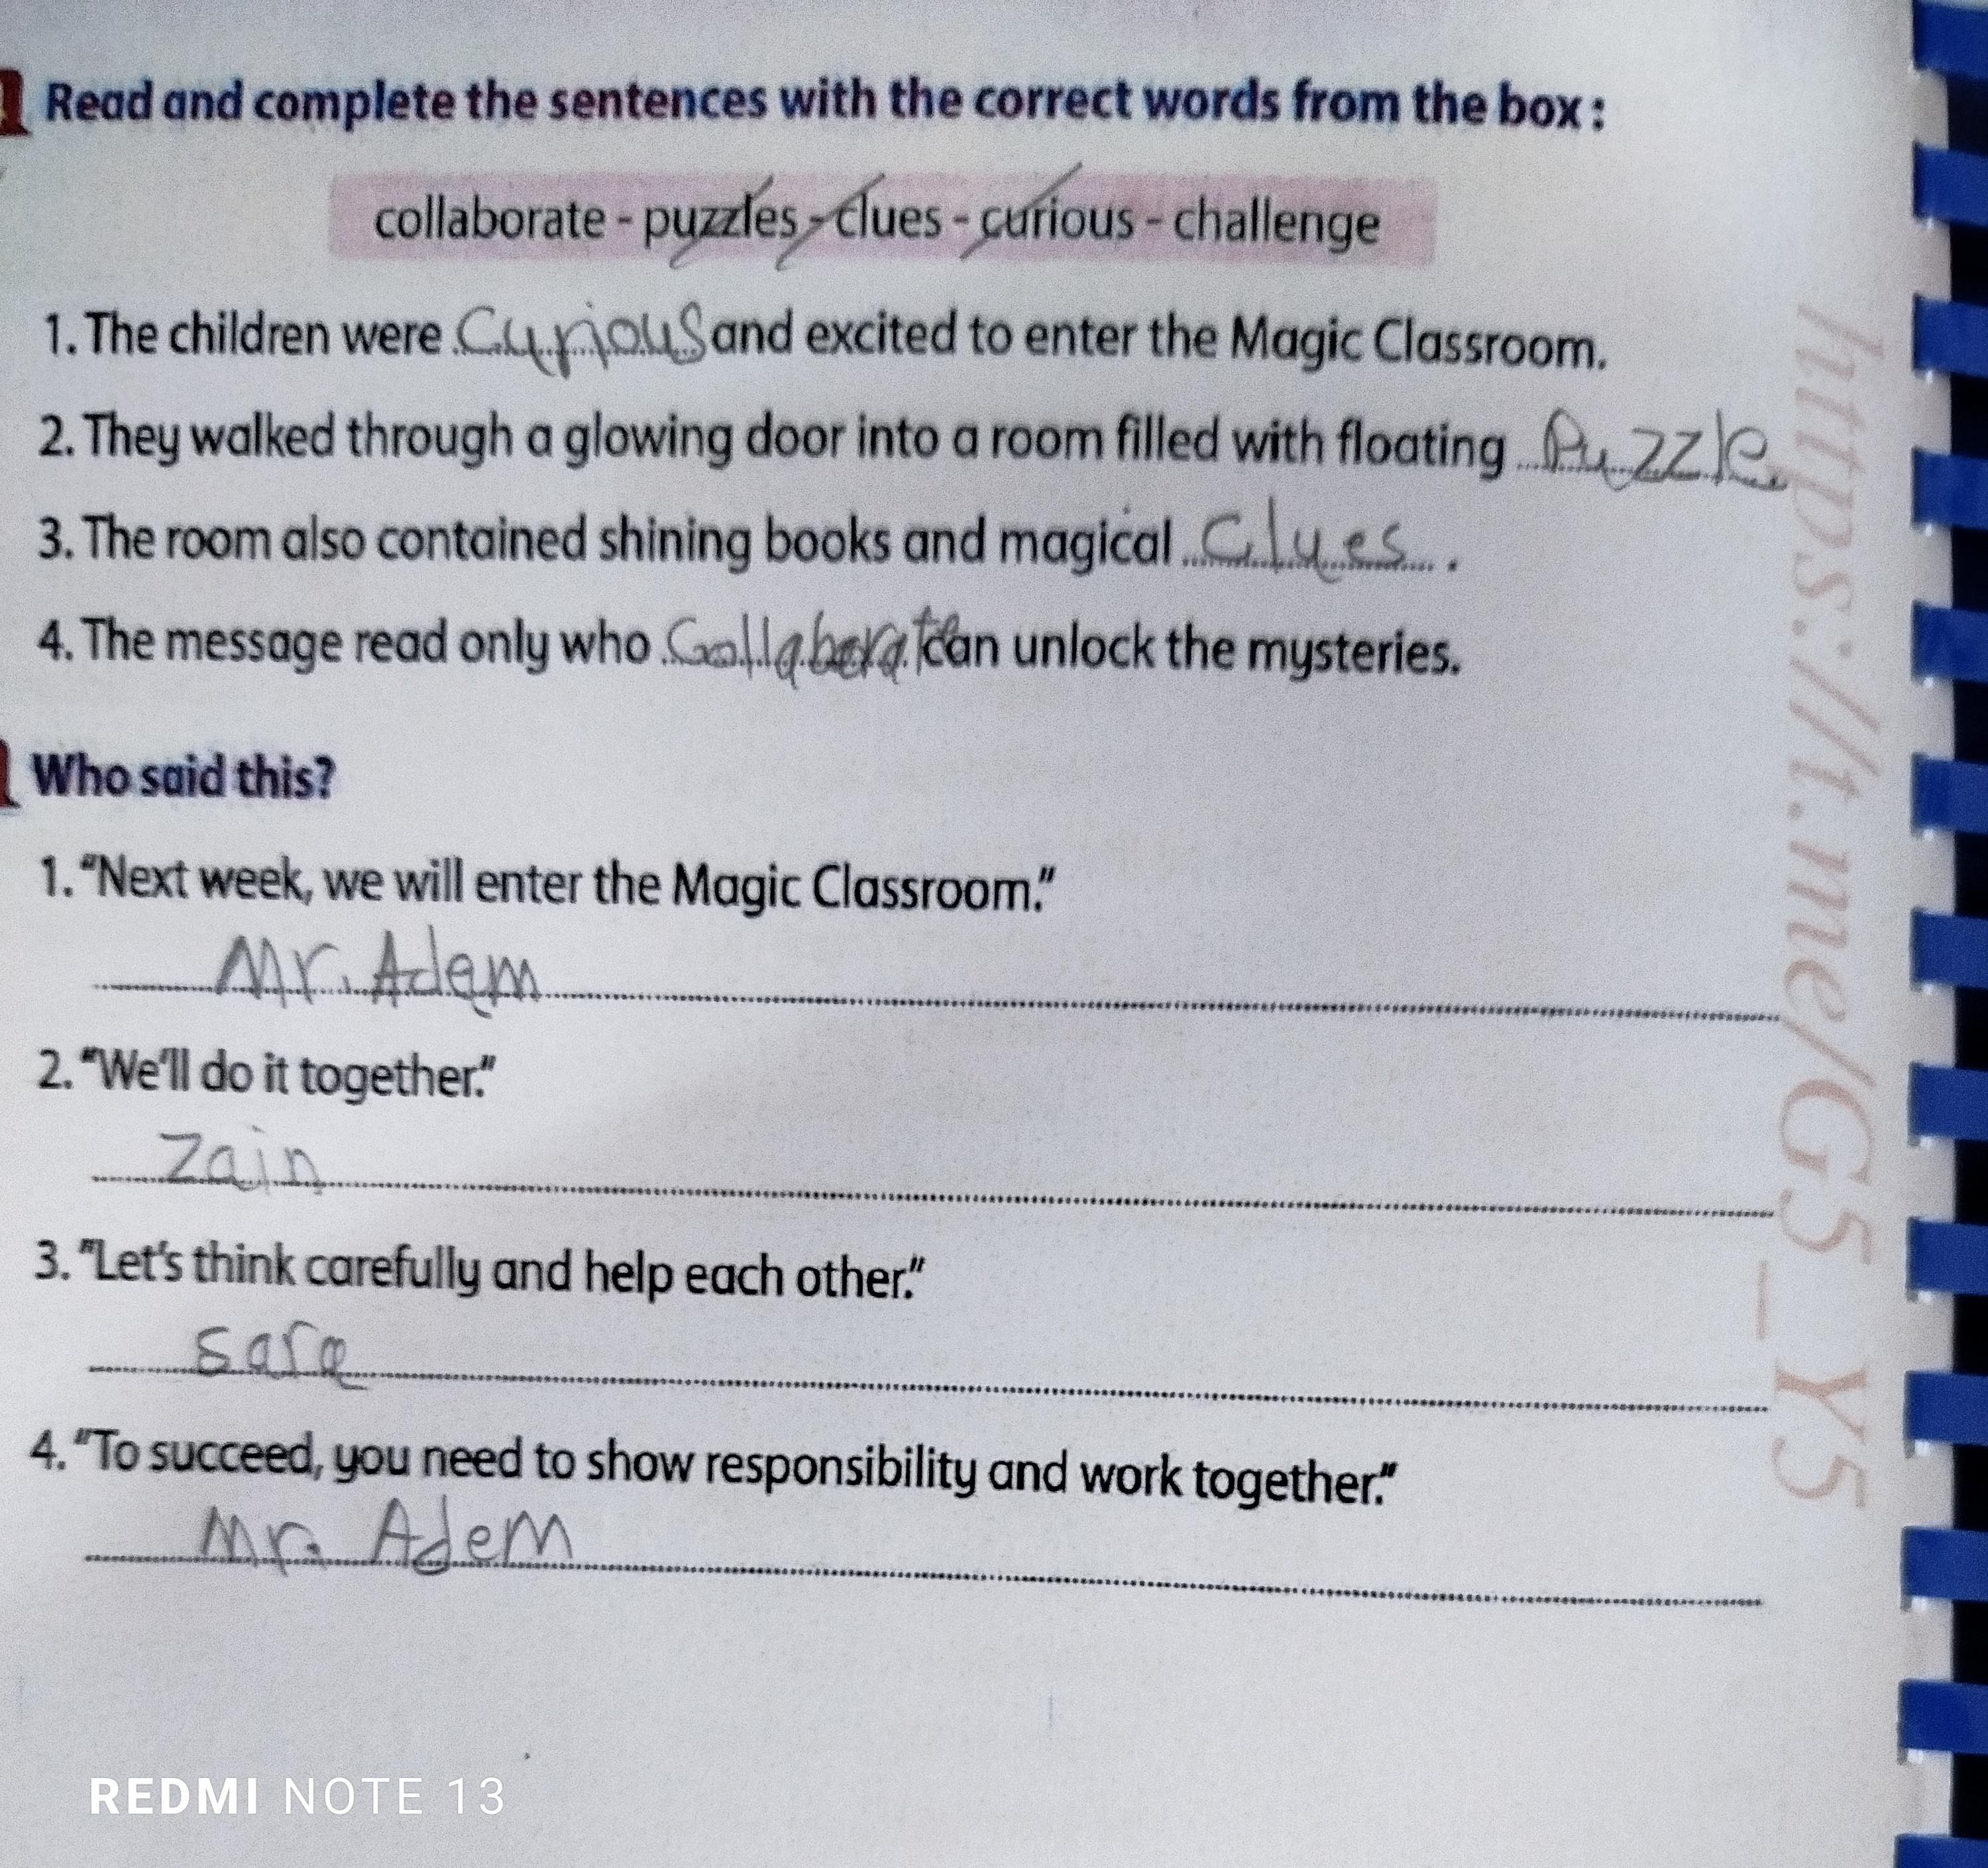 Read and complete the sentences with the correct words from the box :
collaborate - puzzles - clues - curious - challenge
1. The children were Curious and excited to enter the Magic Classroom.
2. They walked through a glowing door into a room filled with floating Puzzle
3. The room also contained shining books and magical Clues .
4. The message read only who Collaborate can unlock the mysteries.
Who said this?
1. "Next week, we will enter the Magic Classroom."
Mr. Adem
2. "We'll do it together."
Zain
3. "Let's think carefully and help each other."
sara
4. "To succeed, you need to show responsibility and work together."
Mr. Adem
https://t.me/G5_Y5
REDMI NOTE 13